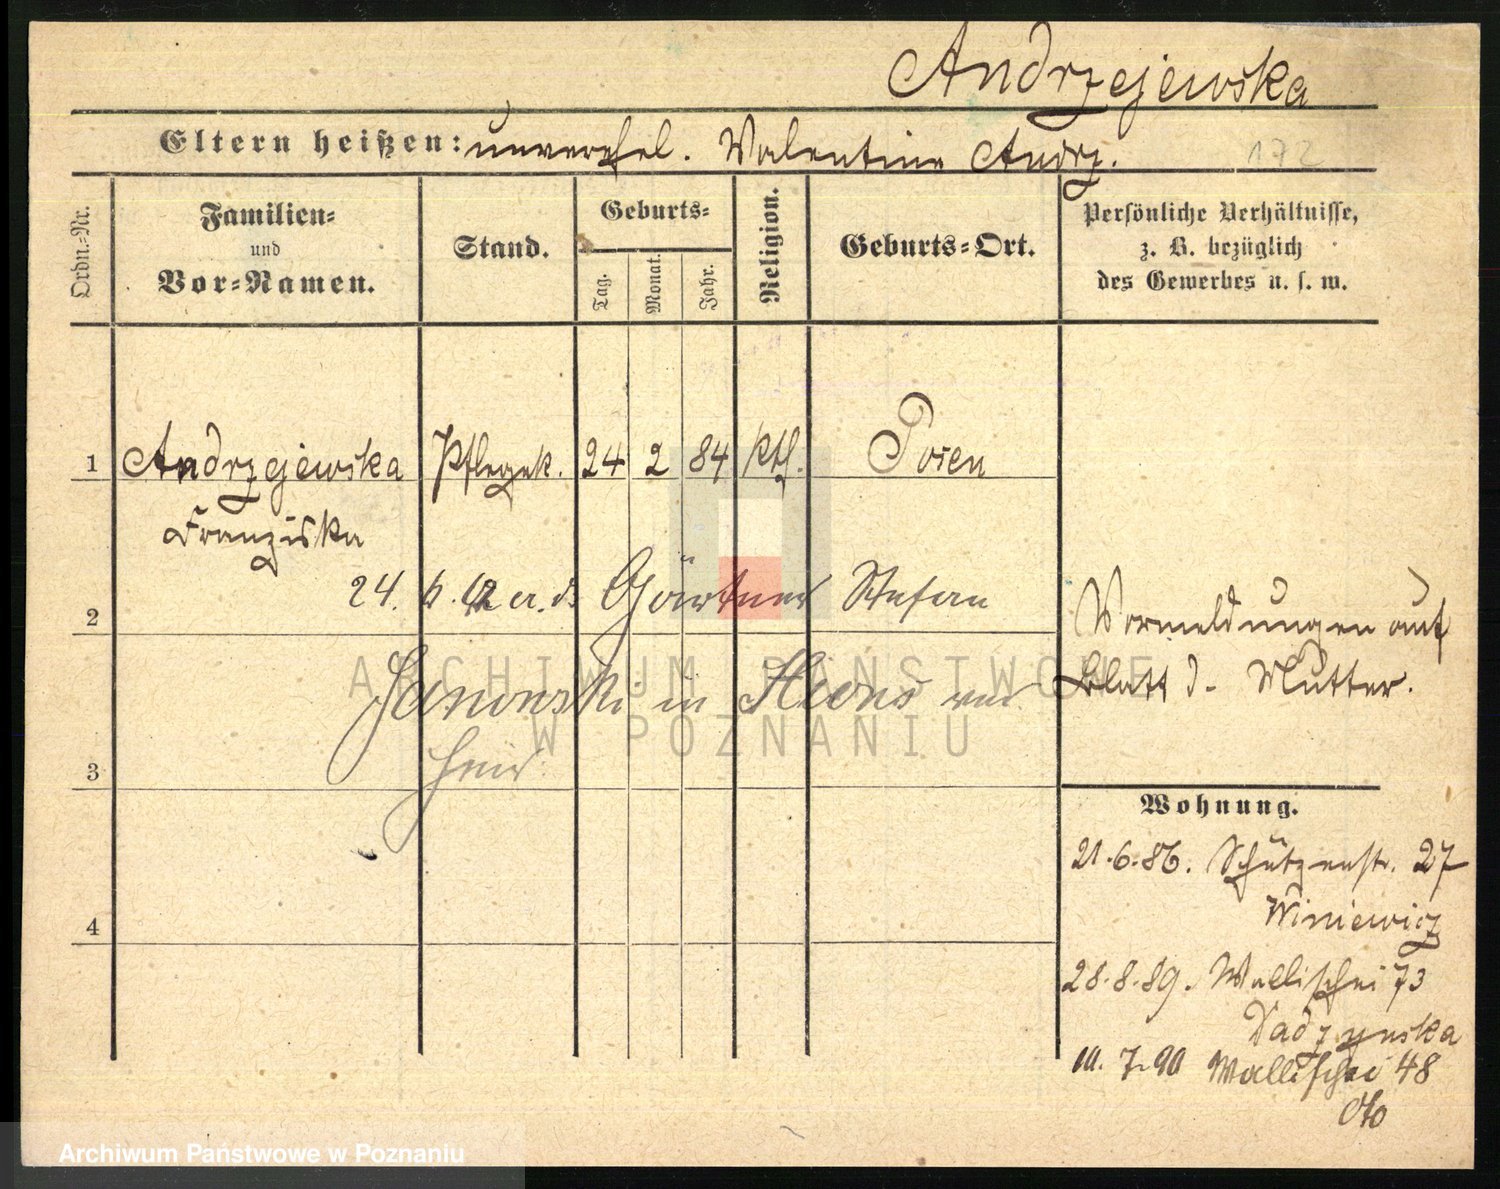 Andrzejewska
Eltern heißen: unverehel. Valentine Andrz.
172
Ordn.-Nr.
Familien-
und
Vor-Namen.
Stand.
Geburts-
Tag.
Monat.
Jahr.
Religion.
Geburts-Ort.
Persönliche Verhältnisse,
z. B. bezüglich
des Gewerbes u. s. w.
1 Andrzejewska Pflegek. 24 2 84 kth. Posen
Franziska
24. 6. er. d. Gärtner Stefan
2
Janowski in
3
4
Vormeldungen auf
Blatt d. Mutter.
Wohnung.
21.6.86. Schützenstr. 27
Winiewicz
28.8.89. Wallischei 73
Dadzynska
10.7.90 Wallischei 48
Oto
ARCHIWUM PAŃSTWOWE
W POZNANIU
Archiwum Państwowe w Poznaniu